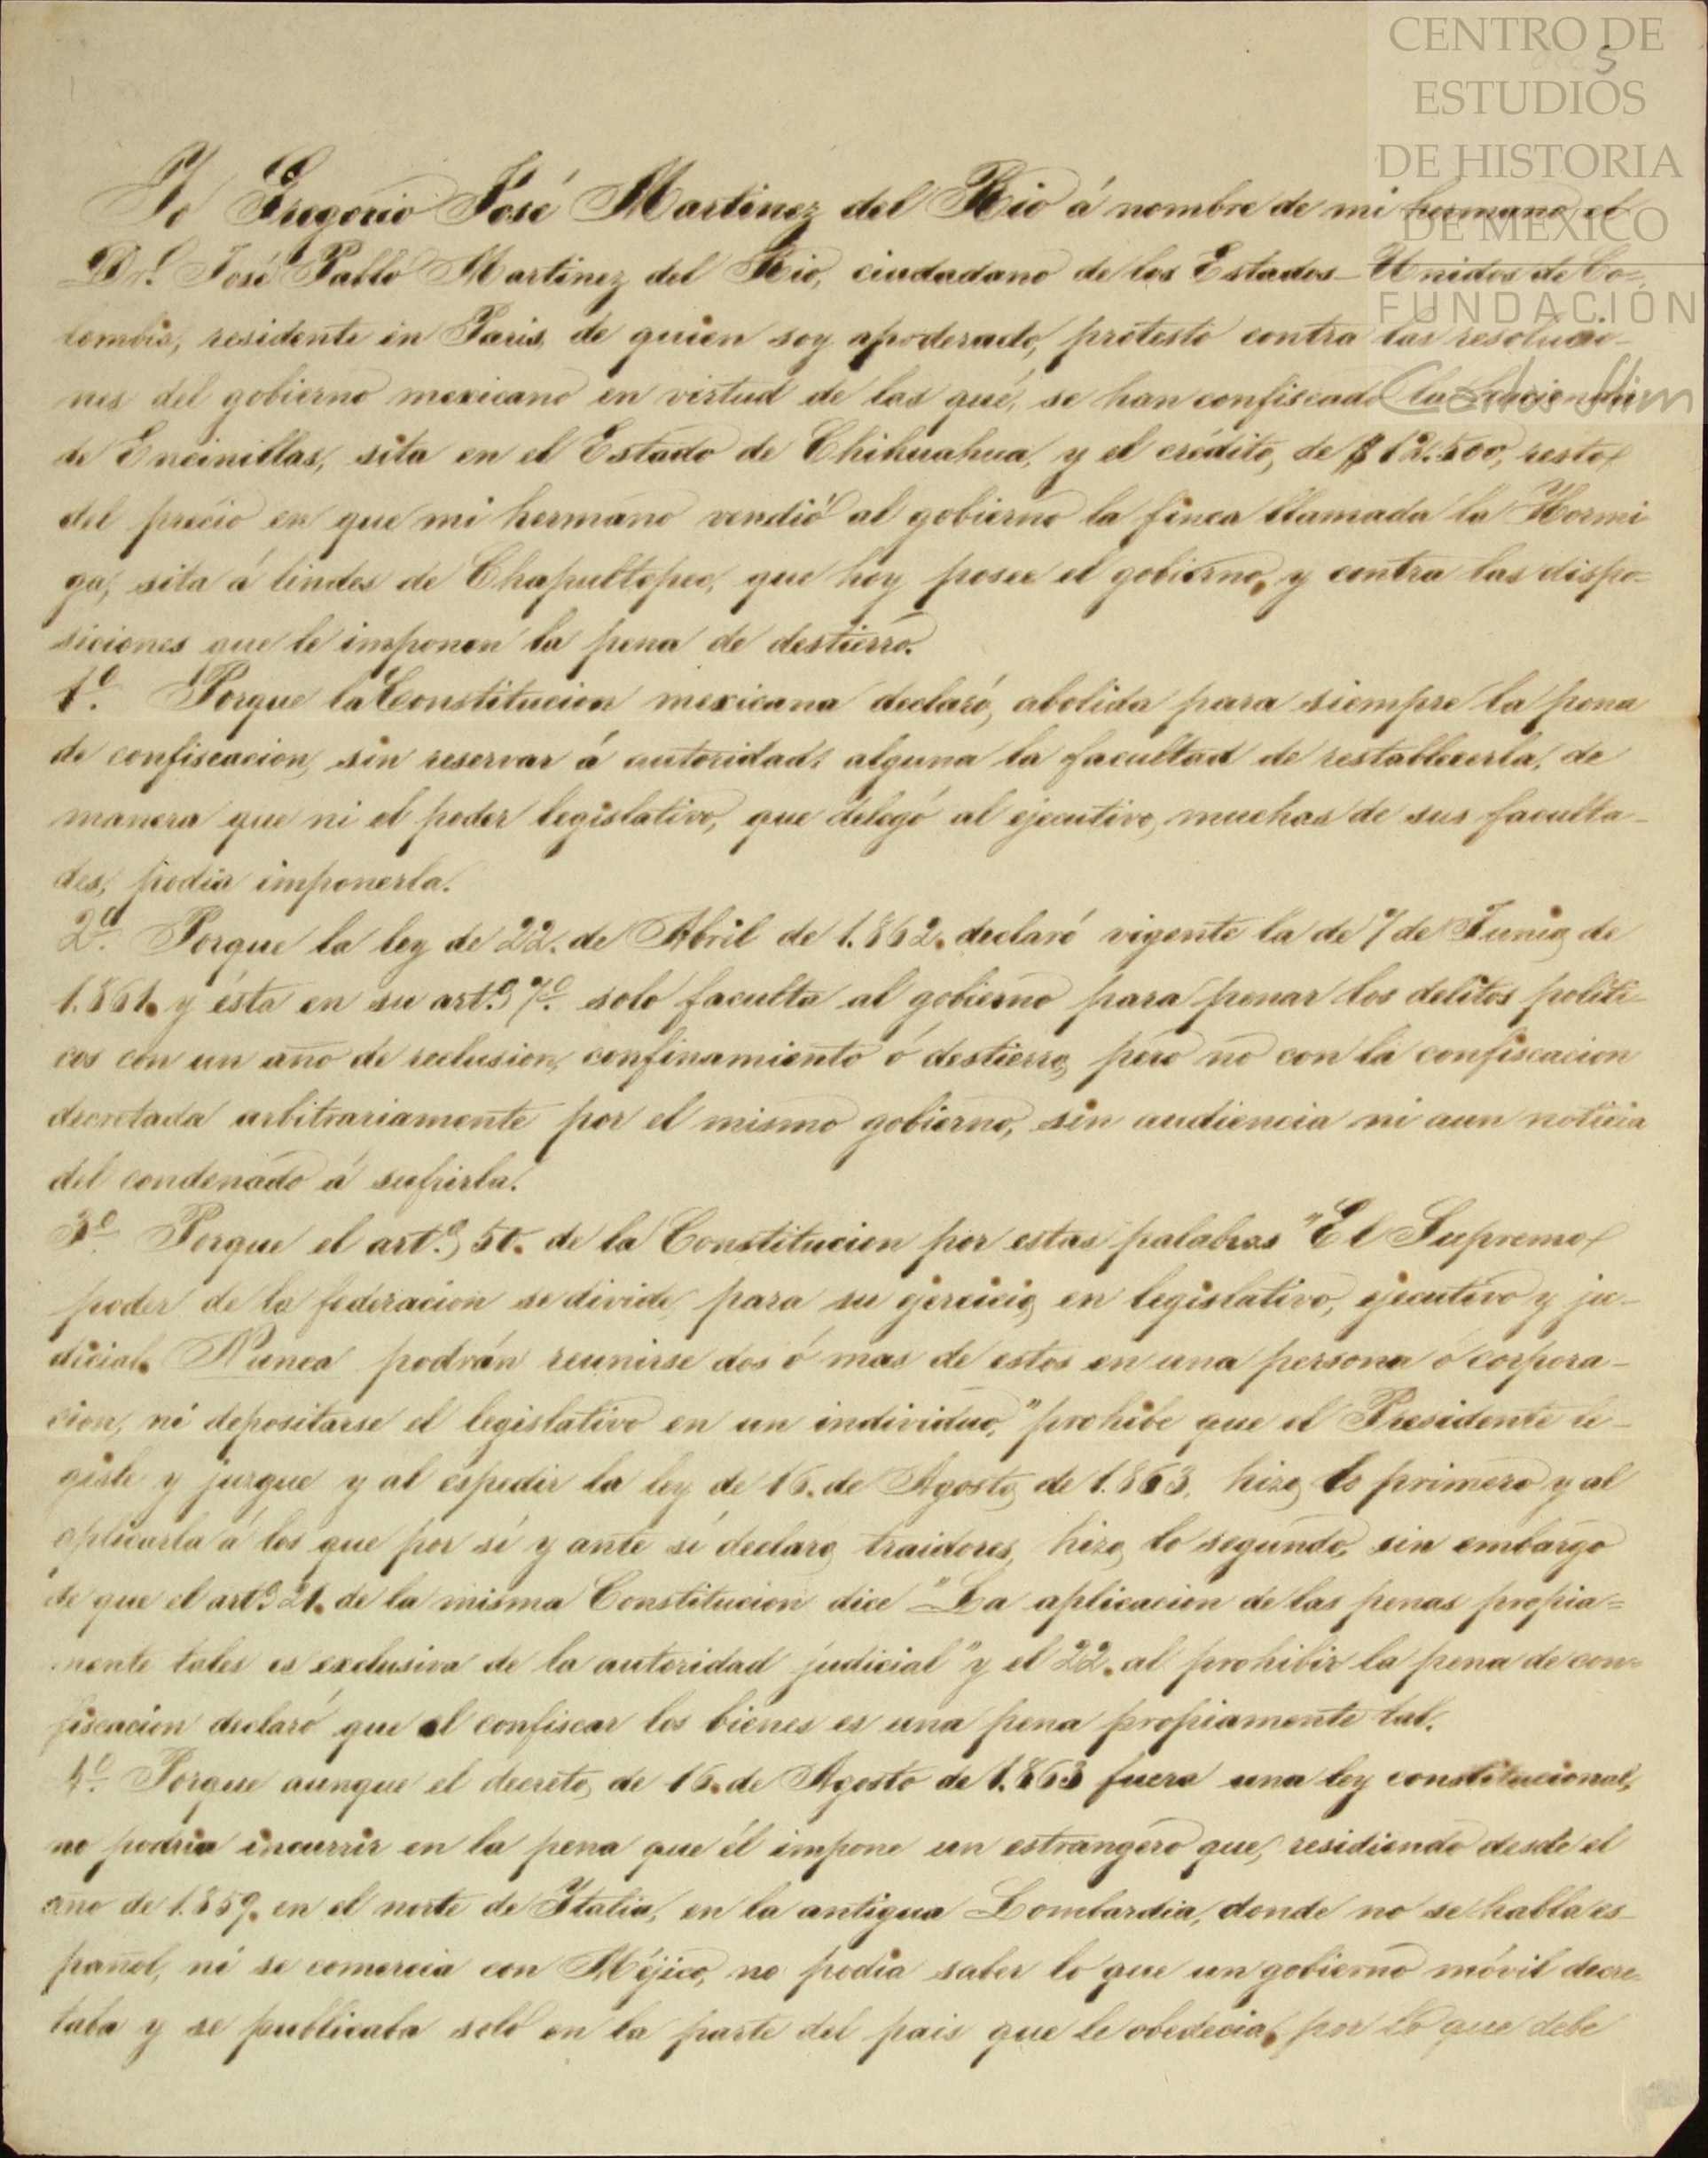 CENTRO DE
ESTUDIOS
DE HISTORIA
DE MÉXICO
FUNDACIÓN
Carlos Slim
5
Yo Gregorio José Martinez del Rio á nombre de mi hermano el
Dr. José Pablo Martinez del Rio, ciudadano de los Estados-Unidos de Co=
lombia, residente en Paris, de quien soy apoderado, protesto contra las resolucio-
nes del gobierno mexicano en virtud de las que, se han confiscado la hacienda
de Encinillas, sita en el Estado de Chihuahua, y el crédito, de $12.500, resto
del precio en que mi hermano vendió al gobierno la finca llamada la Hormi
ga, sita á lindes de Chapultepec, que hoy posee el gobierno, y contra las dispo=
siciones que le imponen la pena de destierro.
1º. Porque la Constitucion mexicana declaró, abolida para siempre la pena
de confiscacion, sin reservar á autoridad alguna la facultad de restablecerla, de
manera que ni el poder legislativo, que delegó al ejecutivo, muchas de sus faculta-
des, podia imponerla.
2º. Porque la ley de 22. de Abril de 1.862. declaró vigente la de 7 de Junio, de
1.861. y ésta en su artº. 7º. solo faculta al gobierno para penar los delitos politi-
cos con un año de reclusion, confinamiento ó destierro, pero no con la confiscacion
decretada arbitrariamente por el mismo gobierno, sin audiencia ni aun noticia
del condenado á sufrirla.
3º. Porque el artº. 50. de la Constitucion por estas palabras "El Supremo
poder de la federacion se divide, para su ejercicio, en legislativo, ejecutivo y ju-
dicial. Nunca podrán reunirse dos ó mas de estos en una persona ó corpora-
cion, ni depositarse el legislativo en un individuo," prohibe que el Presidente le-
gisle y juzgue y al espedir la ley de 16. de Agosto, de 1.863, hizo, lo primero y al
aplicarla á los que por sí y ante sí declaro, traidores, hizo, lo segundo, sin embargo
de que el artº. 21. de la misma Constitucion dice "La aplicacion de las penas propia=
mente tales es exclusiva de la autoridad judicial" y el 22. al prohibir la pena de con=
fiscacion declaró que el confiscar los bienes es una pena propiamente tal.
4º. Porque aunque el decreto, de 16. de Agosto de 1.863 fuera una ley constitucional,
no podria incurrir en la pena que él impone un estrangero que, residiendo desde el
año de 1.859. en el norte de Italia, en la antigua Lombardia, donde no se habla es-
pañol, ni se comercia con Méjico, no podia saber lo que un gobierno móvil decre-
taba y se publicaba solo en la parte del pais que le obedecia, por lo que debe